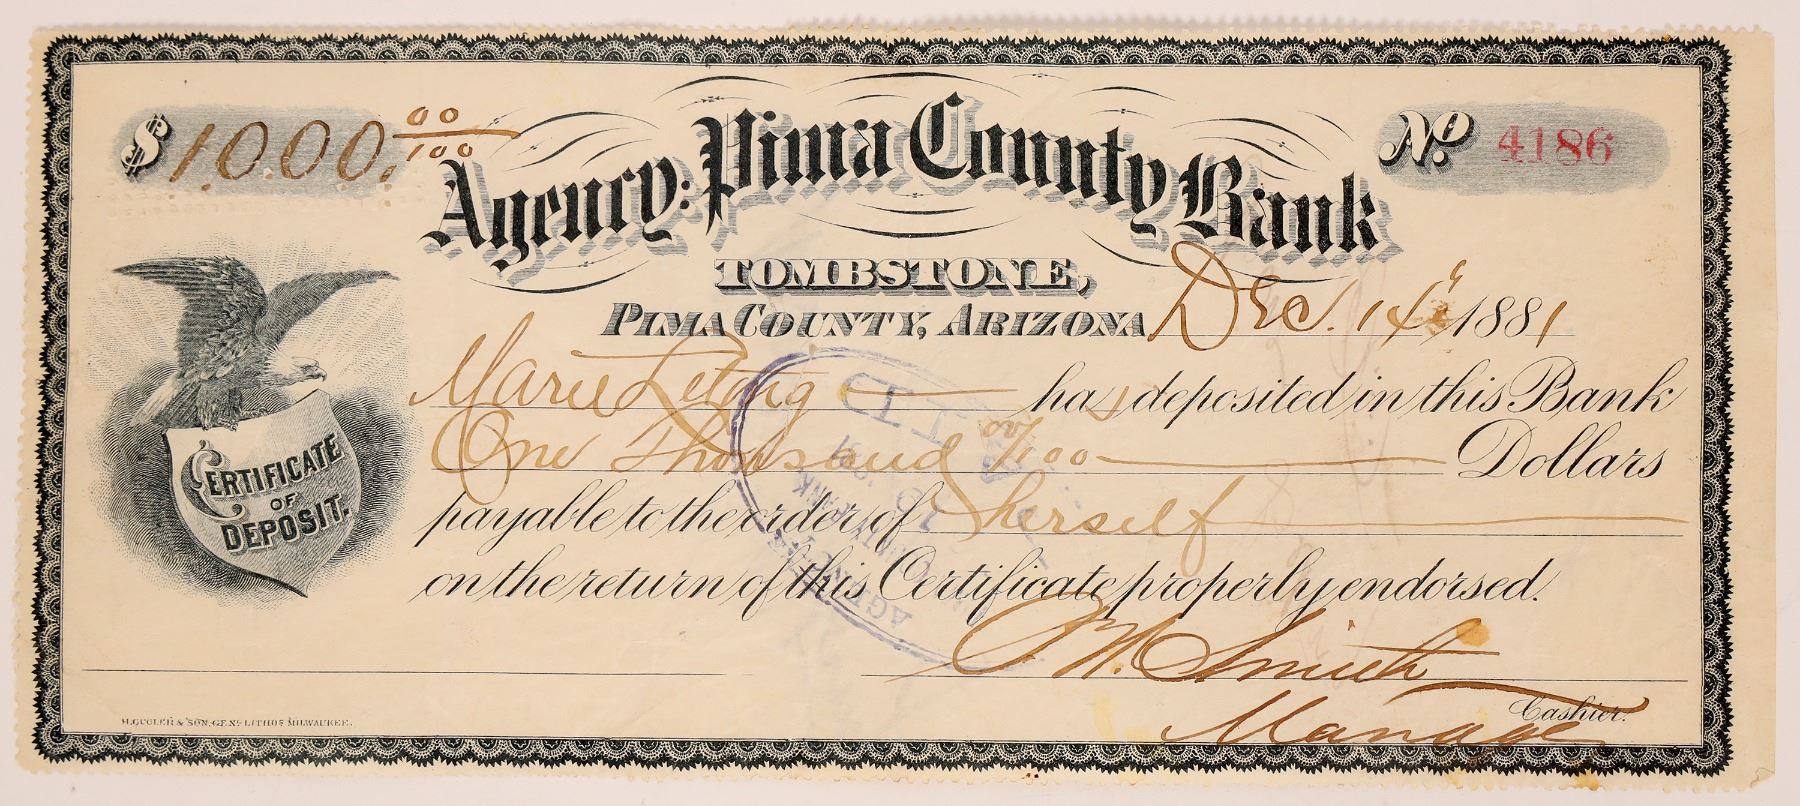 $ 1,000. 00/100
Agency: Pima County Bank
No. 4186
TOMBSTONE,
PIMA COUNTY, ARIZONA Dec. 14 1881
Marie Letang has deposited in this Bank
One Thousand 00/100 Dollars
payable to the order of herself
on the return of this Certificate properly endorsed.
CERTIFICATE
OF
DEPOSIT.
P. W. Smith
Cashier.
Manager
H. GUGLER & SON, GEN'L LITHOS MILWAUKEE.
PAID